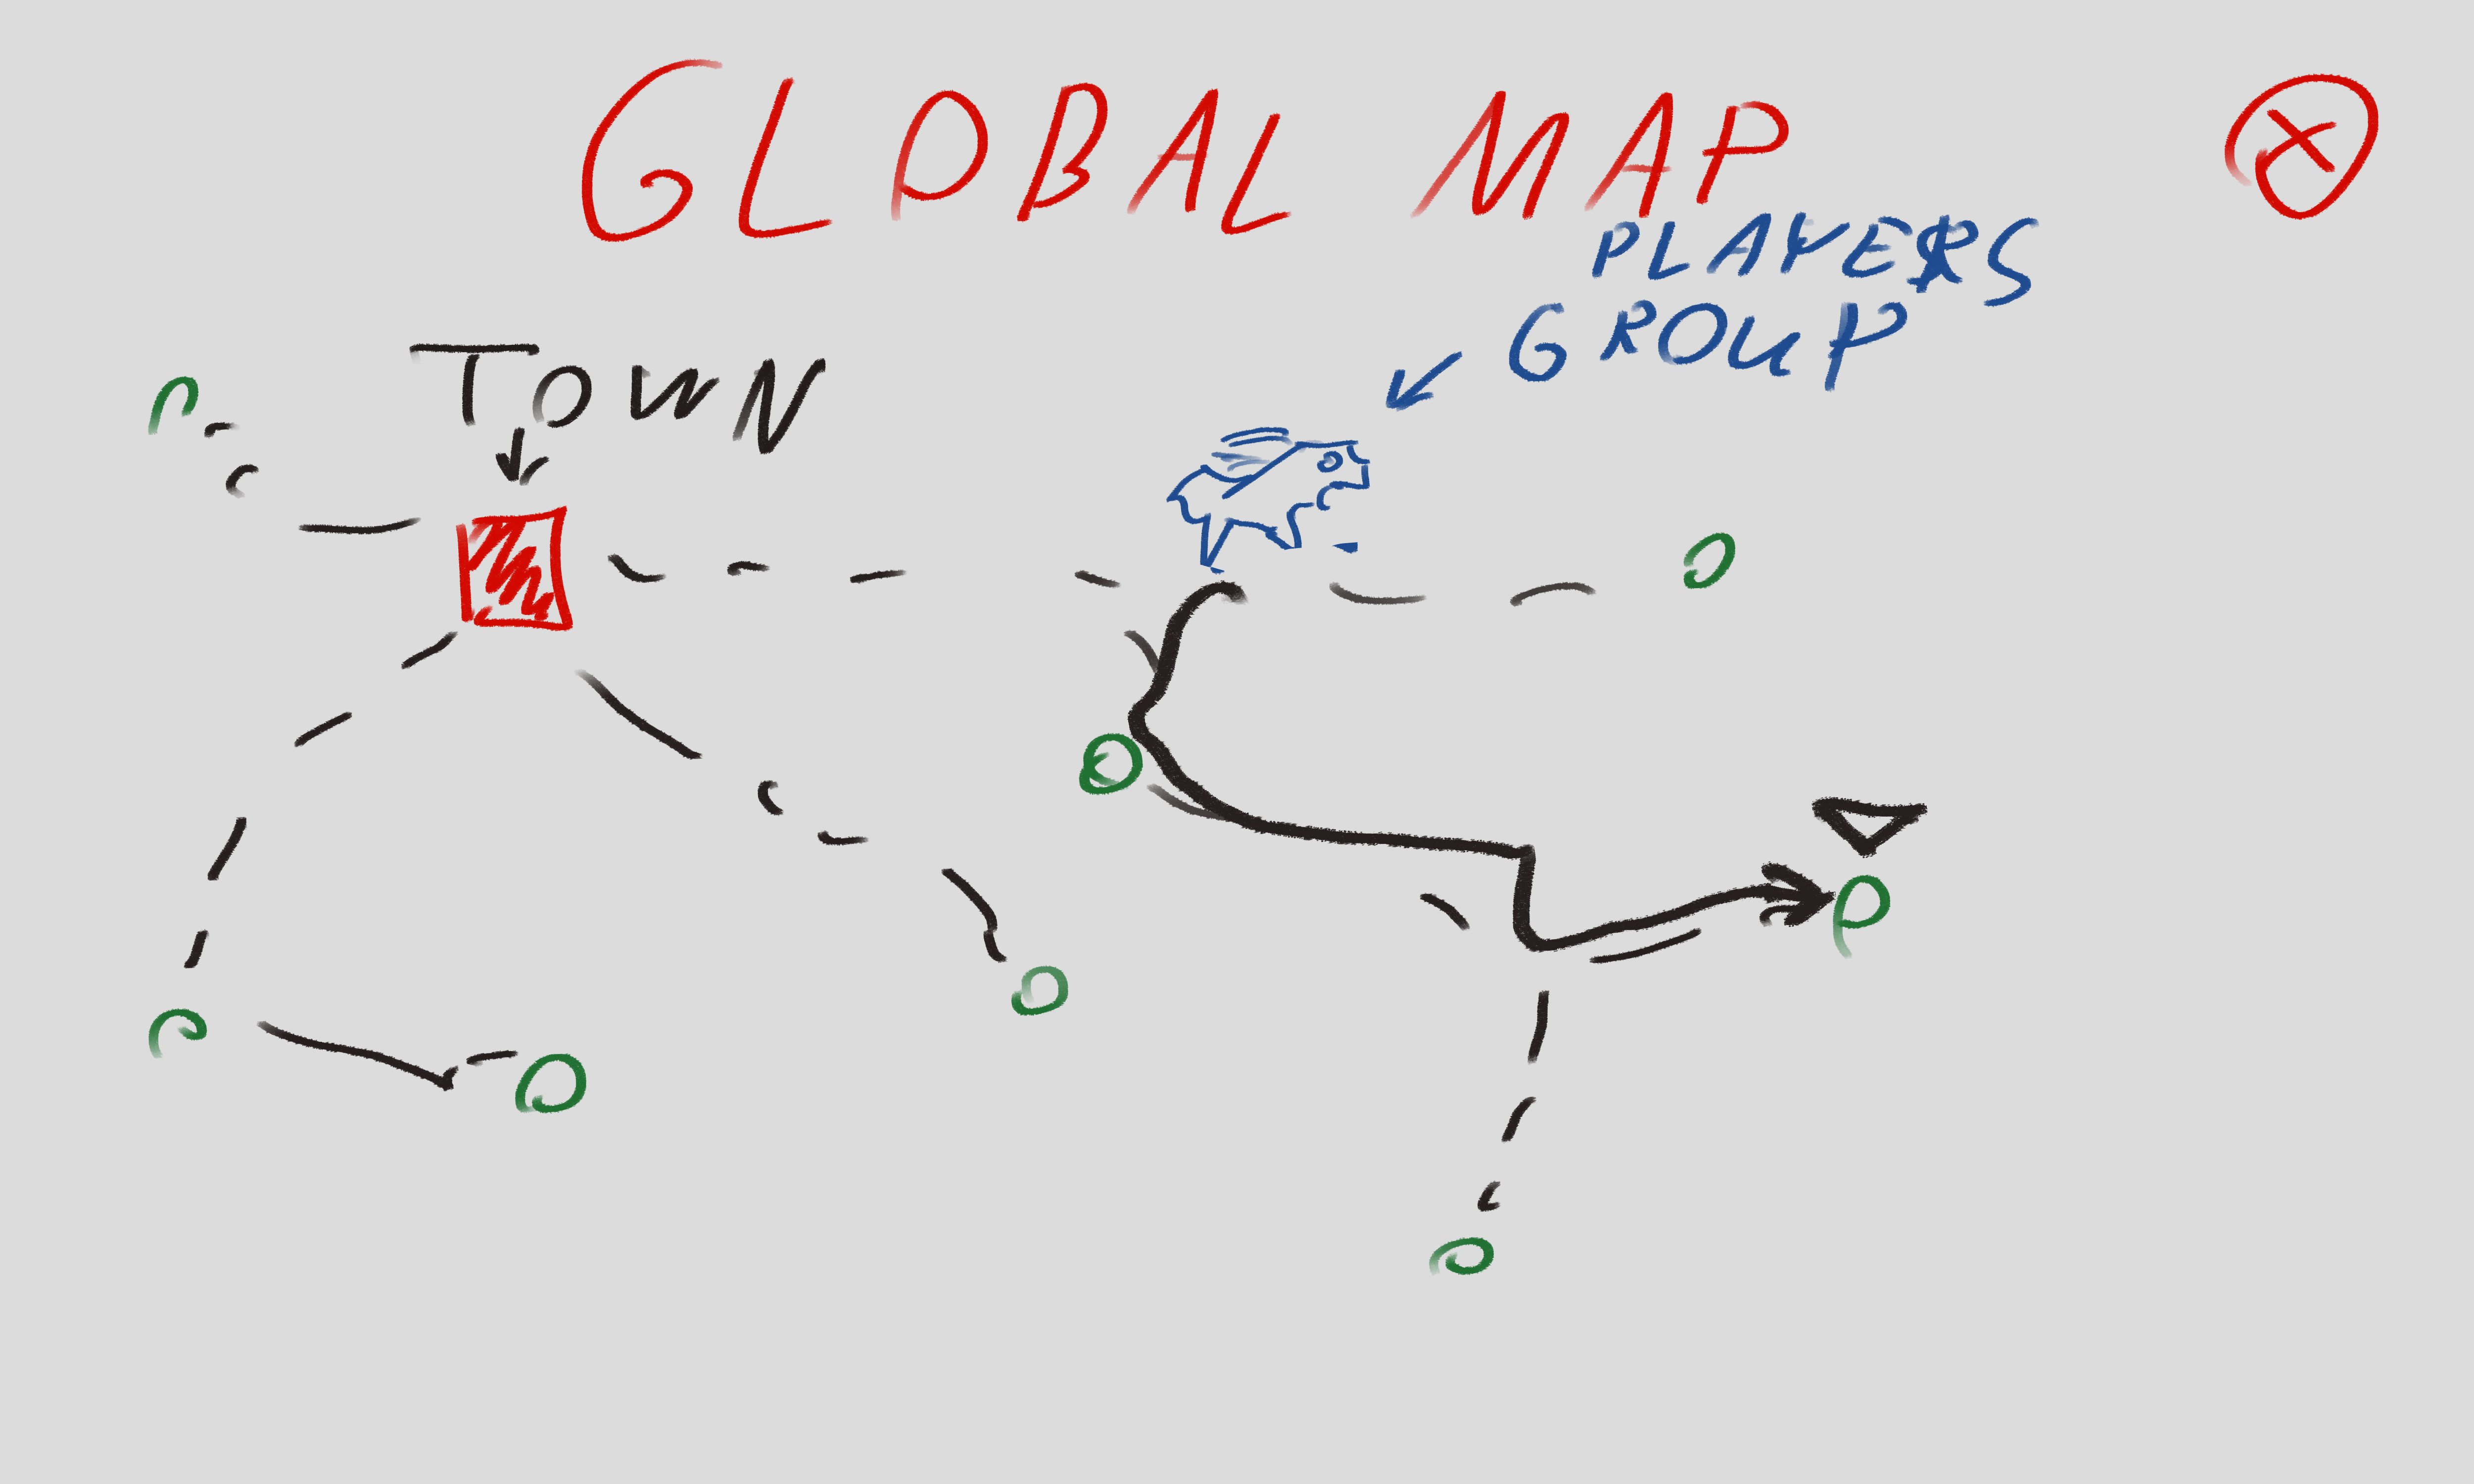 GLOBAL MAP
PLAYERS
GROUP
TOWN